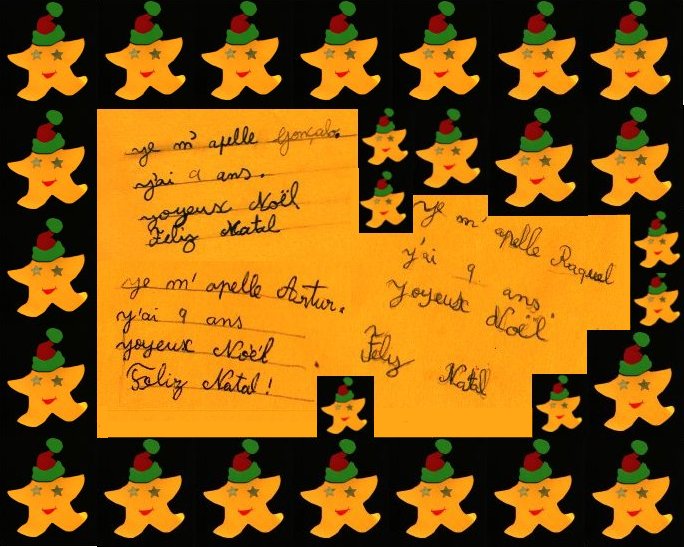 je m'apelle Gonçalo.
j'ai 9 ans.
joyeux Noël
Feliz Natal
je m'apelle Artur.
j'ai 9 ans
joyeux Noël
Feliz Natal!
je m'apelle Raquel
j'ai 9 ans
Joyeux Noël
Feliz
Natal